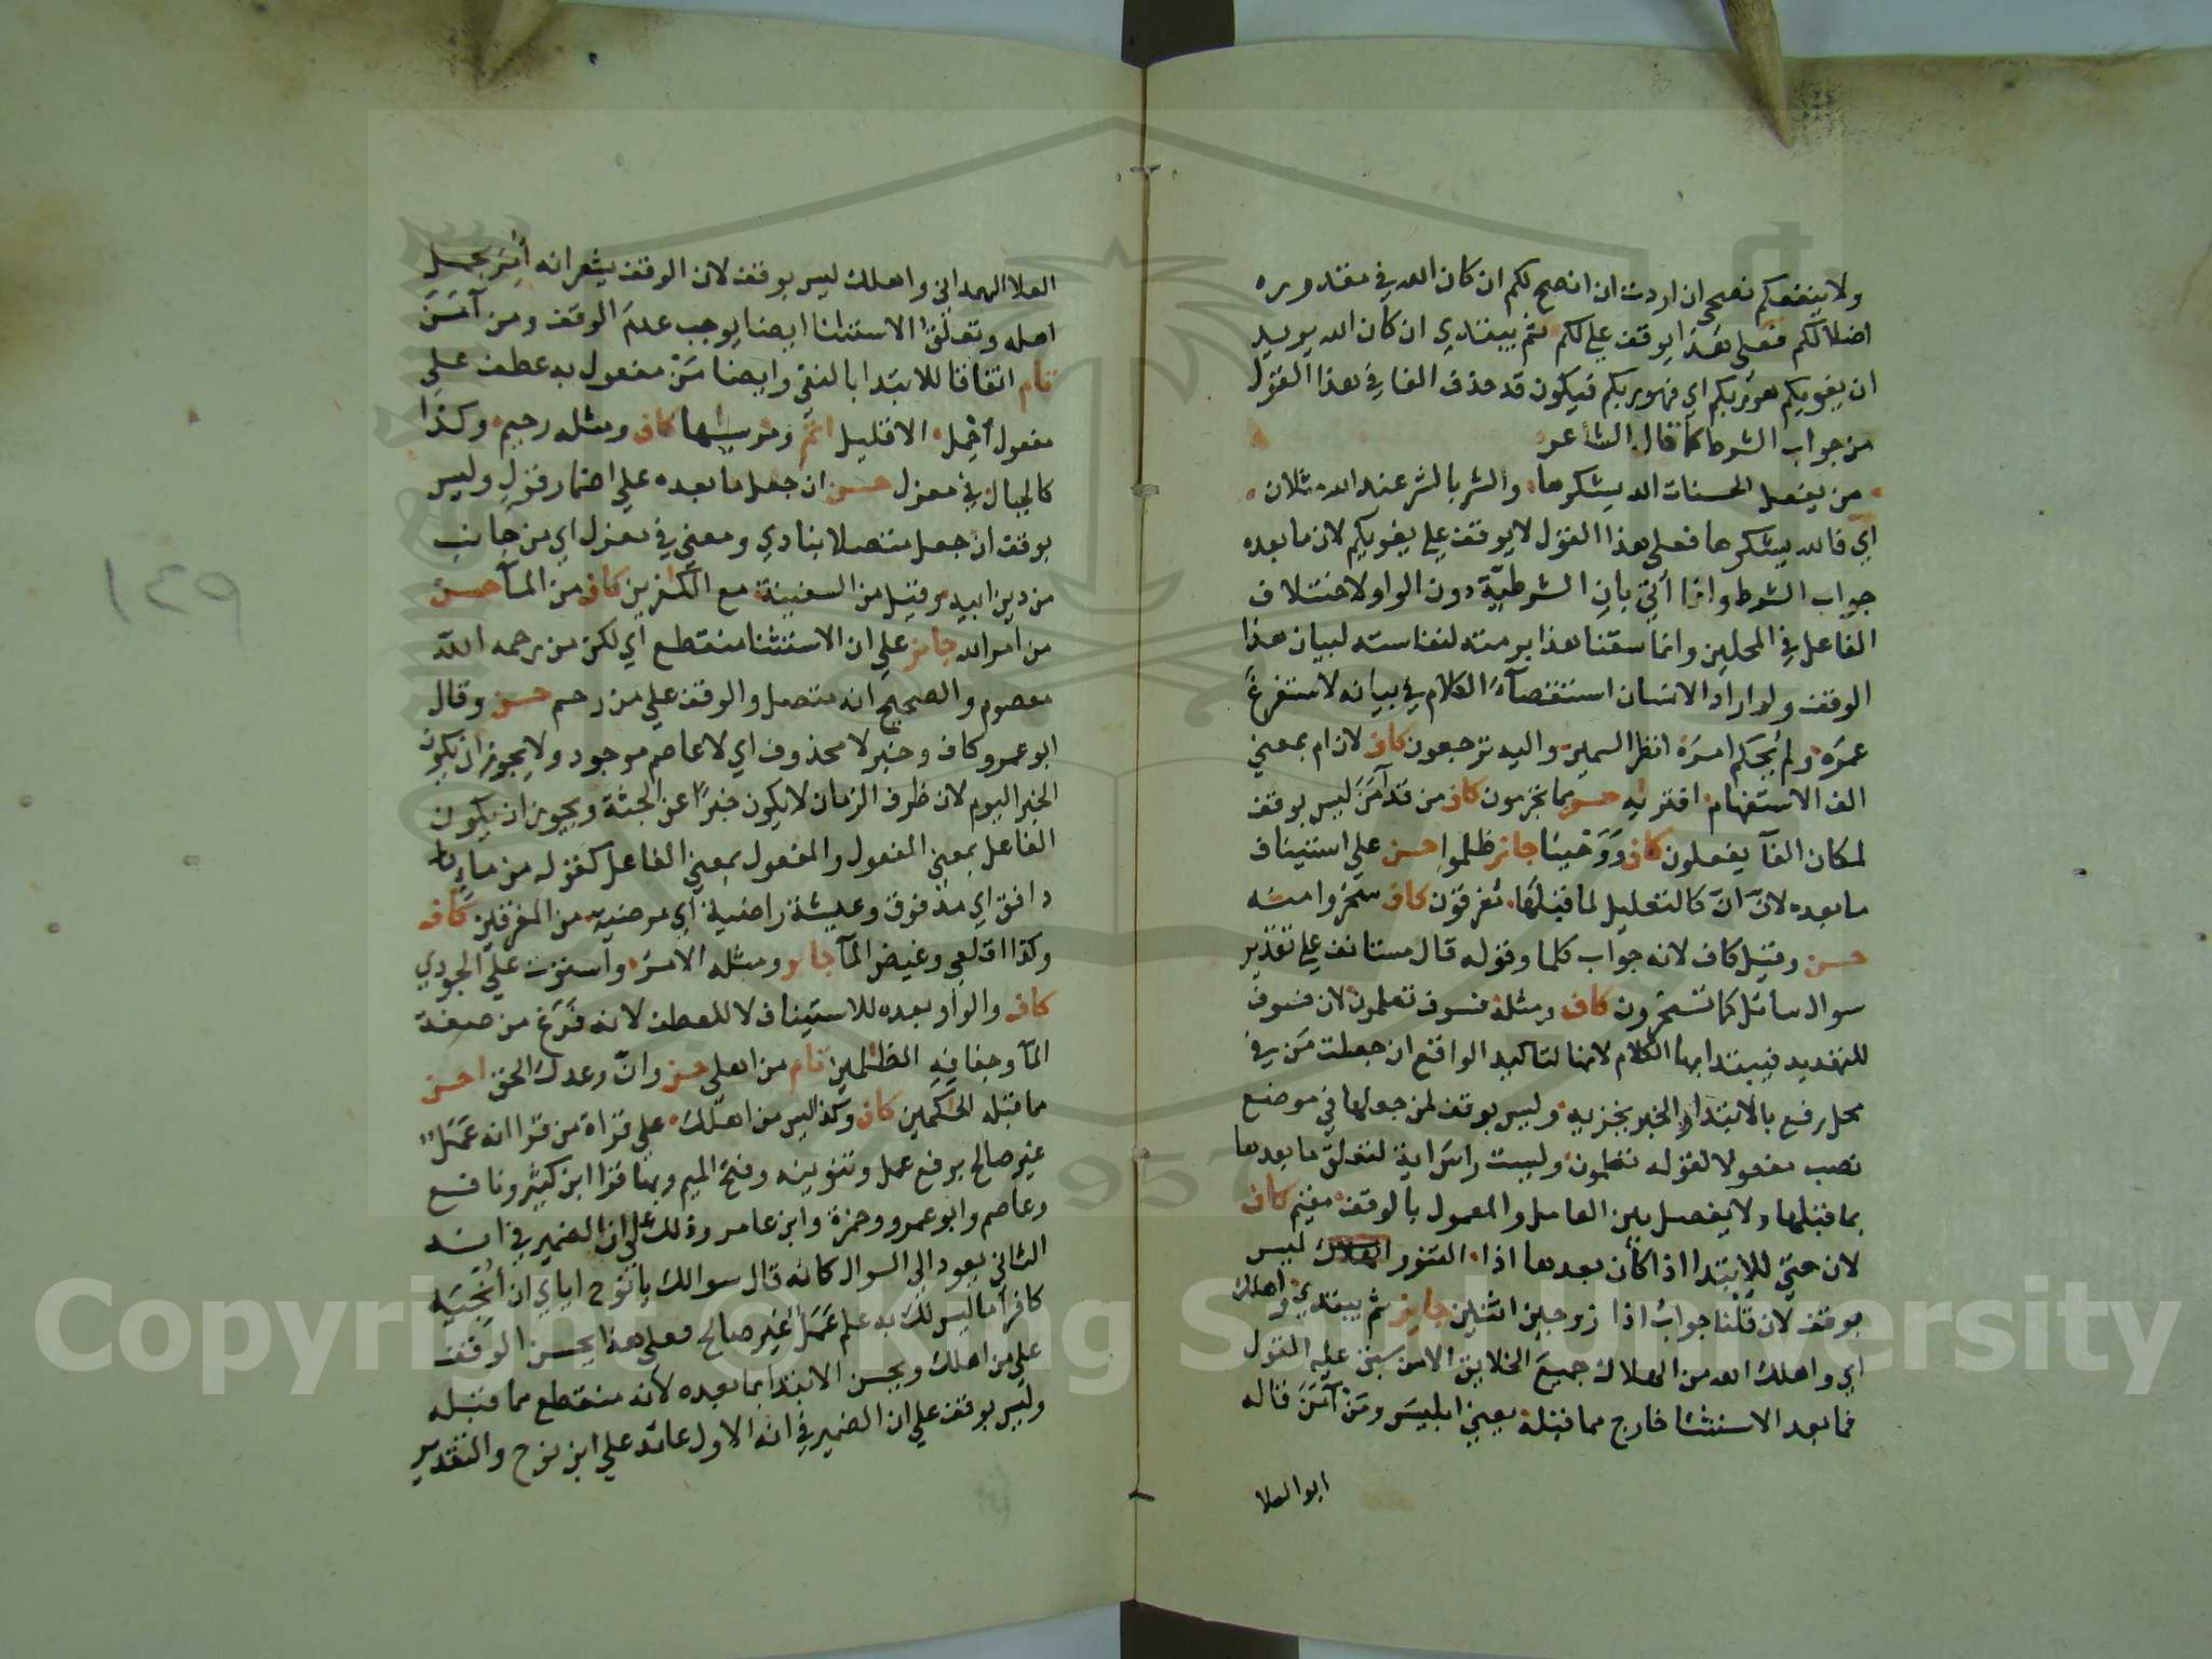 ولا ينفعكم نصحي ان اردت ان انصح لكم ان كان الله في مقدوره
اضلالكم فعلى هذا يوقف على لكم ثم يبتدي ان كان الله يريد
ان يغويكم هو ربكم اي فهو ربكم فيكون قد حذف الفا في هذا القول
من جواب الشرط كما قال الشاعر
من يفعل الحسنات الله يشكرها والشر بالشر عند الله مثلان
اي فالله يشكرها فعلى هذا القول لا يوقف على يغويكم لان ما بعده
جواب الشرط وانما أتي بان الشرطيّة دون الواو لاختلاف
الفاعل في المحلين وانما سقنا هذا برمته لنفاسته لبيان هذا
الوقف ولو اراد الانسان استقصآء الكلام في بيانه لاستفرغ
عمره ولم يحكم امره انظر السمين واليه ترجعون كاف لان ام بمعنى
الف الاستفهام افتريه حسن مما تجرمون كاف من قد آمن ليس بوقف
لمكان الفآ يفعلون كاف ووحينا جائز ظلموا حسن على استيناف
ما بعده لانّ انّ كالتعليل لما قبلها مغرقون كاف سخروا منه
حسن وقيل كاف لانه جواب كلما وقوله قال مستانف على تقدير
سوال سائل كما تسخرون كاف ومثله فسوف تعلمون لان فسوف
للتهديد فيبتدا بها الكلام لانها لتاكيد الواقع ان جعلت من في
محل رفع بالابتدا والخبر يخزيه وليس بوقف لمن جعلها في موضع
نصب مفعولا لقوله تعلمون وليست راس اية لتعلق ما بعدها
بما قبلها ولا يفصل بين العامل والمعمول بالوقف مقيم كاف
لان حتى للابتدا اذا كان بعدها اذا التنور ليس
بوقف لان قلنا جواب اذا زوجين اثنين جايز ثم يبتدي واهلك
اي واهلك الله من الهلاك جميع الخلايق الا من سبق عليه القول
فما بعد الاستثنا خارج مما قبله يعني ابليس ومن آمن قاله
ابو العلا
العلا الهمداني واهلك ليس بوقف لان الوقف يشعر انه أُمر بحمل
اهله وتعلّق الاستثنا ايضا يوجب عدم الوقف ومن آمن
تام اتفاقا للابتدا بالنفي وايضا من مفعول به عطف على
مفعول أحمل الا قليل اتم ومرسيها كاف ومثله رحيم وكذا
كالجبال في معزل حسن ان جعل ما بعده على اضمار قول وليس
بوقف ان جعل متصلا بنادي ومعنى في معزل اي من جانب
من دين ابيه وقيل من السفينة مع الكفرين كاف من المآ حسن
من امر الله جائز على ان الاستثنا منقطع اي لكن من رحمه الله
معصوم والصحيح انه متصل والوقف على من رحم حسن وقال
ابو عمرو كاف وخبر لا محذوف اي لا عاصم موجود ولا يجوز ان يكون
الخبر اليوم لان ظرف الزمان لا يكون خبرًا عن الجثة ويجوز ان يكون
الفاعل بمعنى المفعول والمفعول بمعنى الفاعل كقوله من ماء
دافق اي مدفوق وعيشة راضية اي مرضية من المغرقين كاف
وكذا اقلعي وغيض المآ جائز ومثله الامر واستوت على الجودي
كاف والواو بعده للاستيناف لا للعطف لانه فرغ من صفة
المآ وجفافه الظلمين تام من اهلي حسن وانّ وعدك الحق احسن
مما قبله الحكمين كاف وكذا ليس من اهلك على قراة من قرا انه عمل
غير صالح برفع عمل وتنوينه وفتح الميم وبها قرا ابن كثير ونافع
وعاصم وابو عمرو وحمزة وابن عامر وذلك على ان الضمير في انه
الثاني يعود الى السوال كانه قال سوالك يا نوح اياي ان أنجيه
كافرا ما ليس لك به علم عمل غير صالح فعلى هذا يحسن الوقف
على من اهلك ويحسن الابتدا بما بعده لانه منقطع مما قبله
وليس بوقف على ان الضمير في انه الاول عائد على ابن نوح والتقدير
١٤٩
Copyright © King Saud University
957